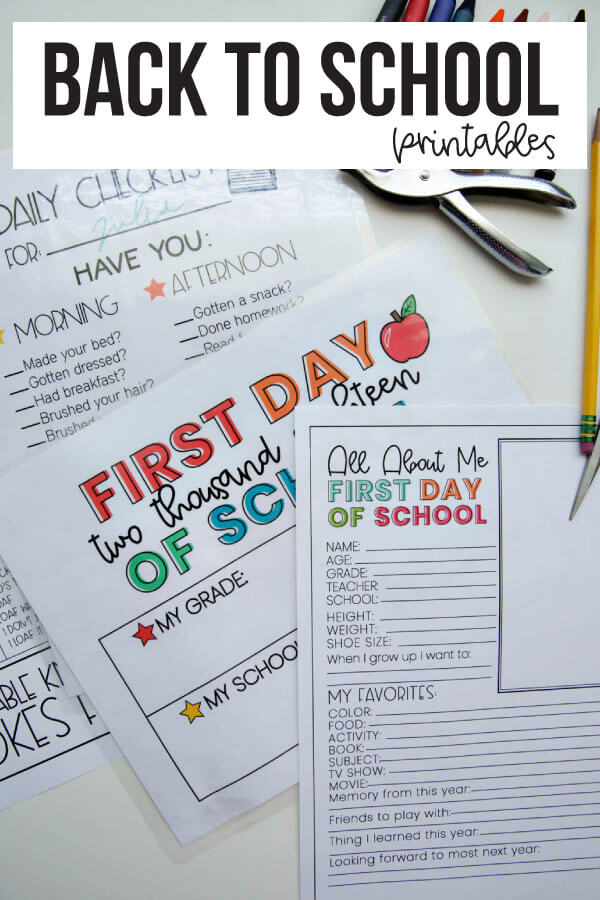 BACK TO SCHOOL
printables
DAILY CHECKLIST
FOR: Julia
HAVE YOU:
MORNING
Made your bed?
Gotten dressed?
Had breakfast?
Brushed your hair?
Brushed
AFTERNOON
Gotten a snack?
Done homework?
Read
FIRST DAY
two thousand
OF
MY GRADE:
MY SCHOOL
All About Me
FIRST DAY
OF SCHOOL
NAME:
AGE:
GRADE:
TEACHER:
SCHOOL:
HEIGHT:
WEIGHT:
SHOE SIZE:
When I grow up I want to:
MY FAVORITES:
COLOR:
FOOD:
ACTIVITY:
BOOK:
SUBJECT:
TV SHOW:
MOVIE:
Memory from this year:
Friends to play with:
Thing I learned this year:
Looking forward to most next year:
LOAF
I DON'T
I LOAF